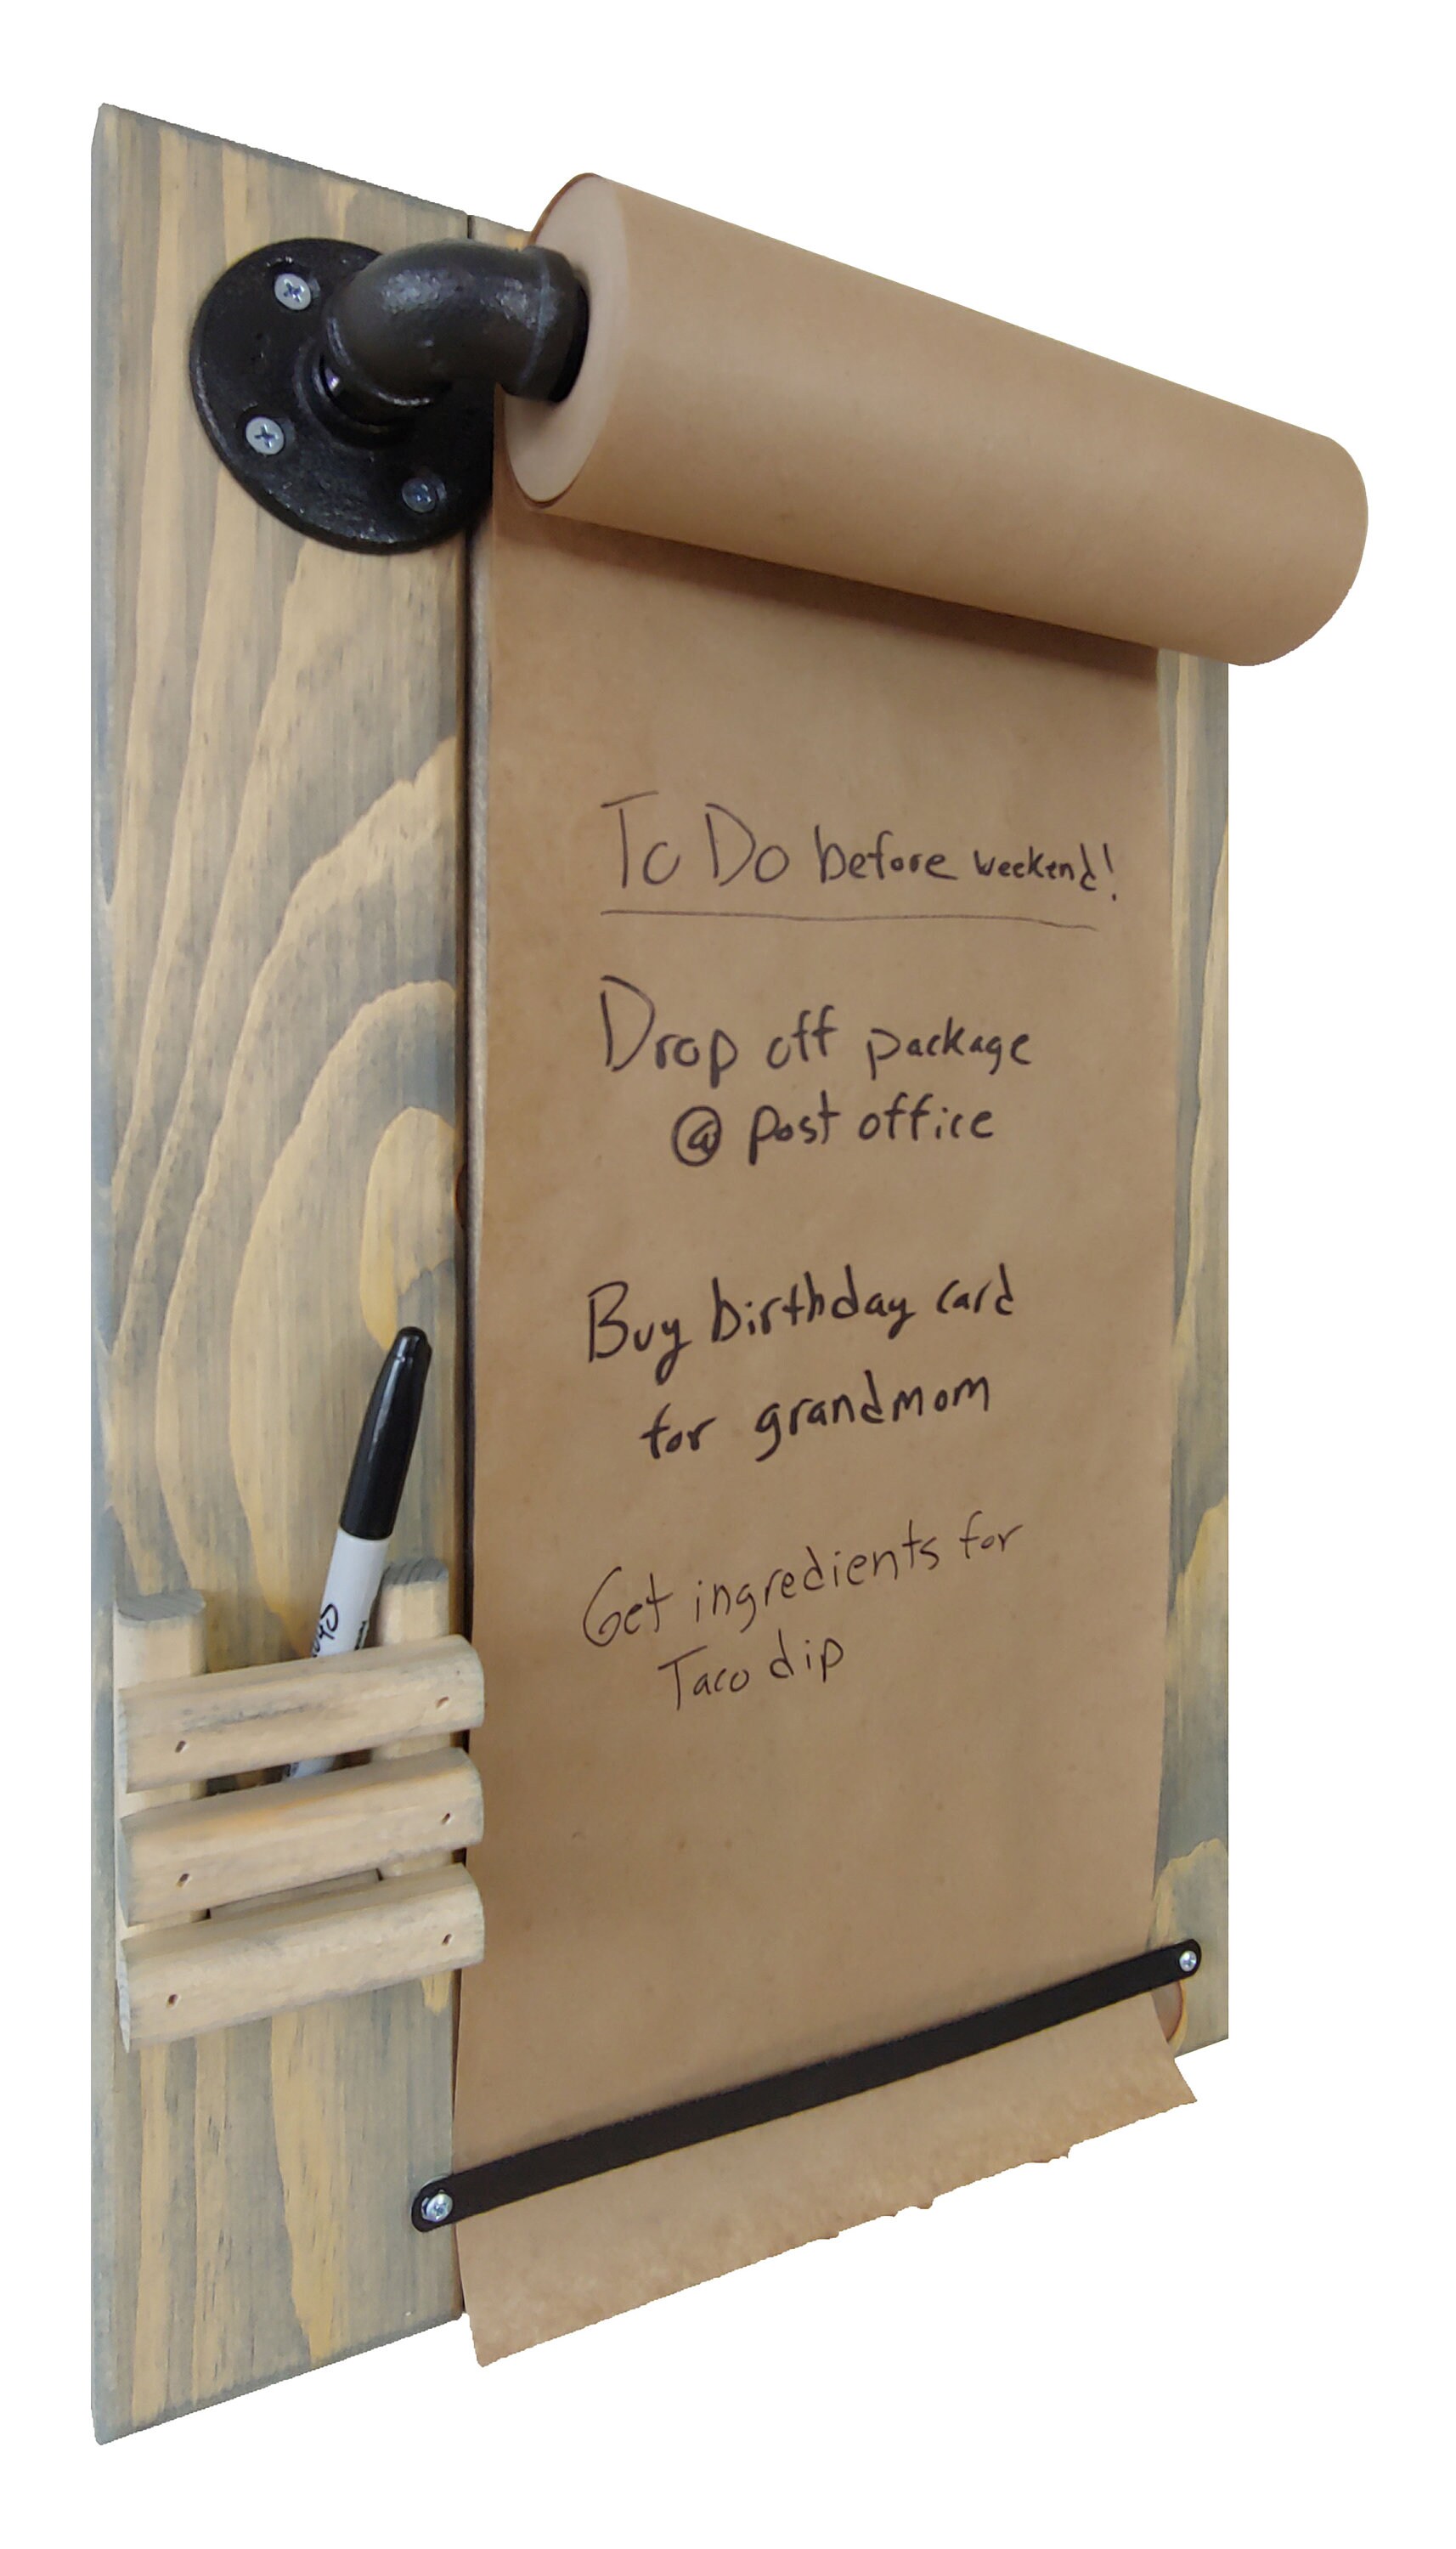 To Do before weekend!
Drop off package
@ post office
Buy birthday card
for grandmom
Get ingredients for
Taco dip